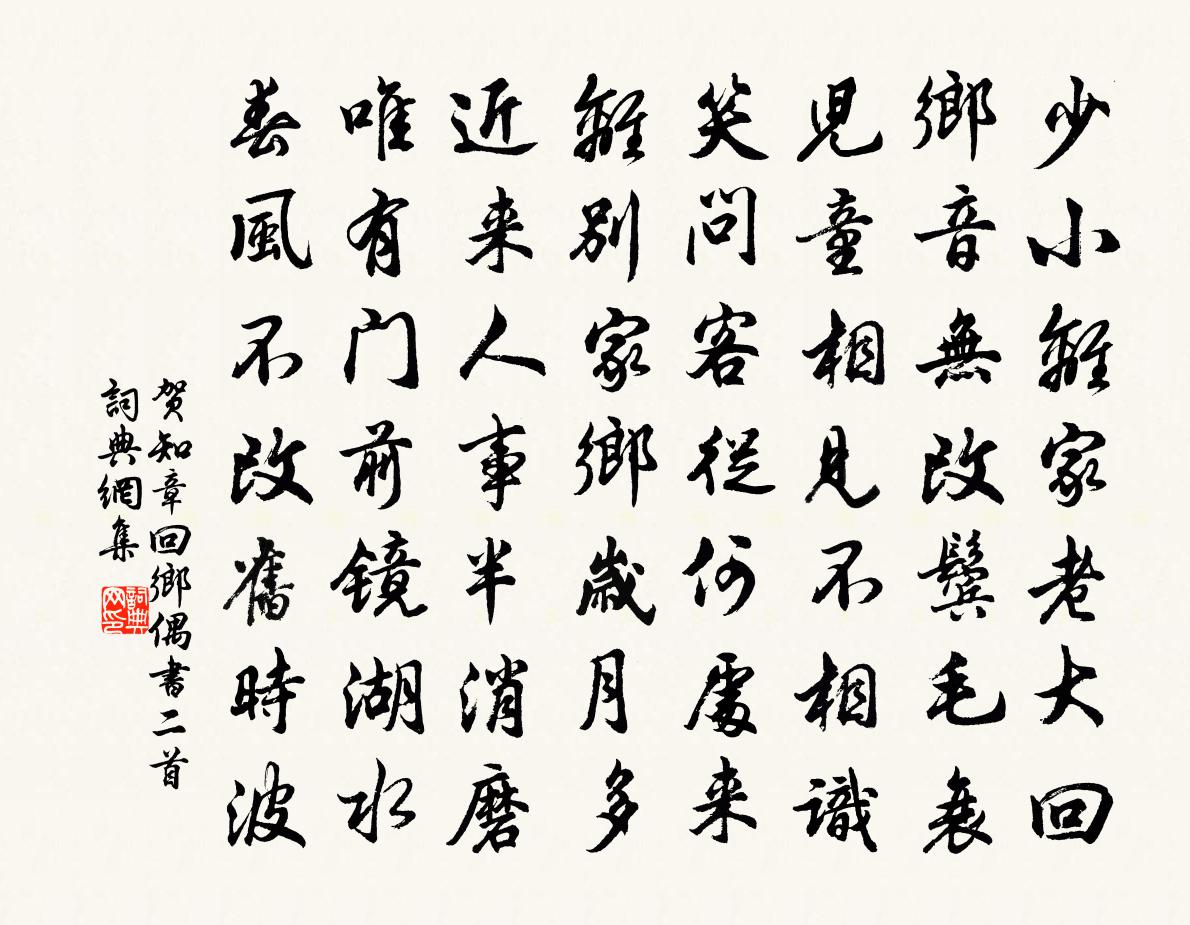 少小離家老大回
鄉音無改鬢毛衰
児童相見不相識
笑問客從何處来
離別家鄉歲月多
近来人事半消磨
唯有门前镜湖水
春風不改舊時波
贺知章回鄉偶書二首
詞典網集
詞典网印